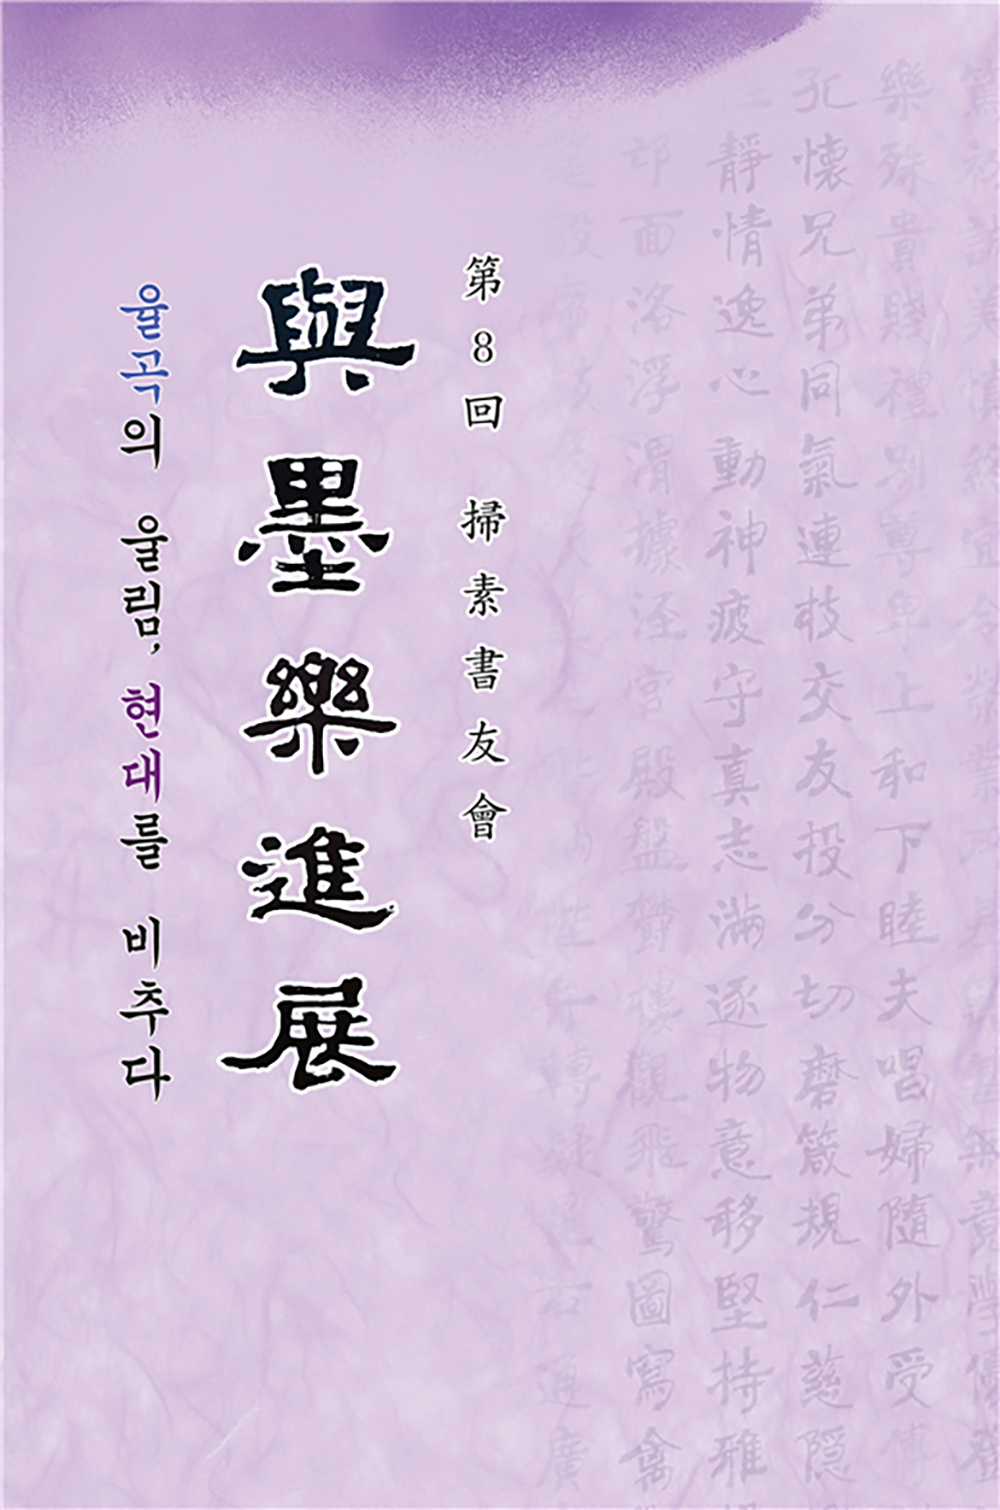 樂殊貴賤禮別尊卑上和下睦夫唱婦隨外受傅
孔懷兄弟同氣連枝交友投分切磨箴規仁慈隱
靜情逸心動神疲守真志滿逐物意移堅持雅
邙面洛浮渭據涇宮殿盤鬱樓觀飛驚圖寫禽
第8回 掃素書友會
與墨樂進展
율곡의 울림, 현대를 비추다